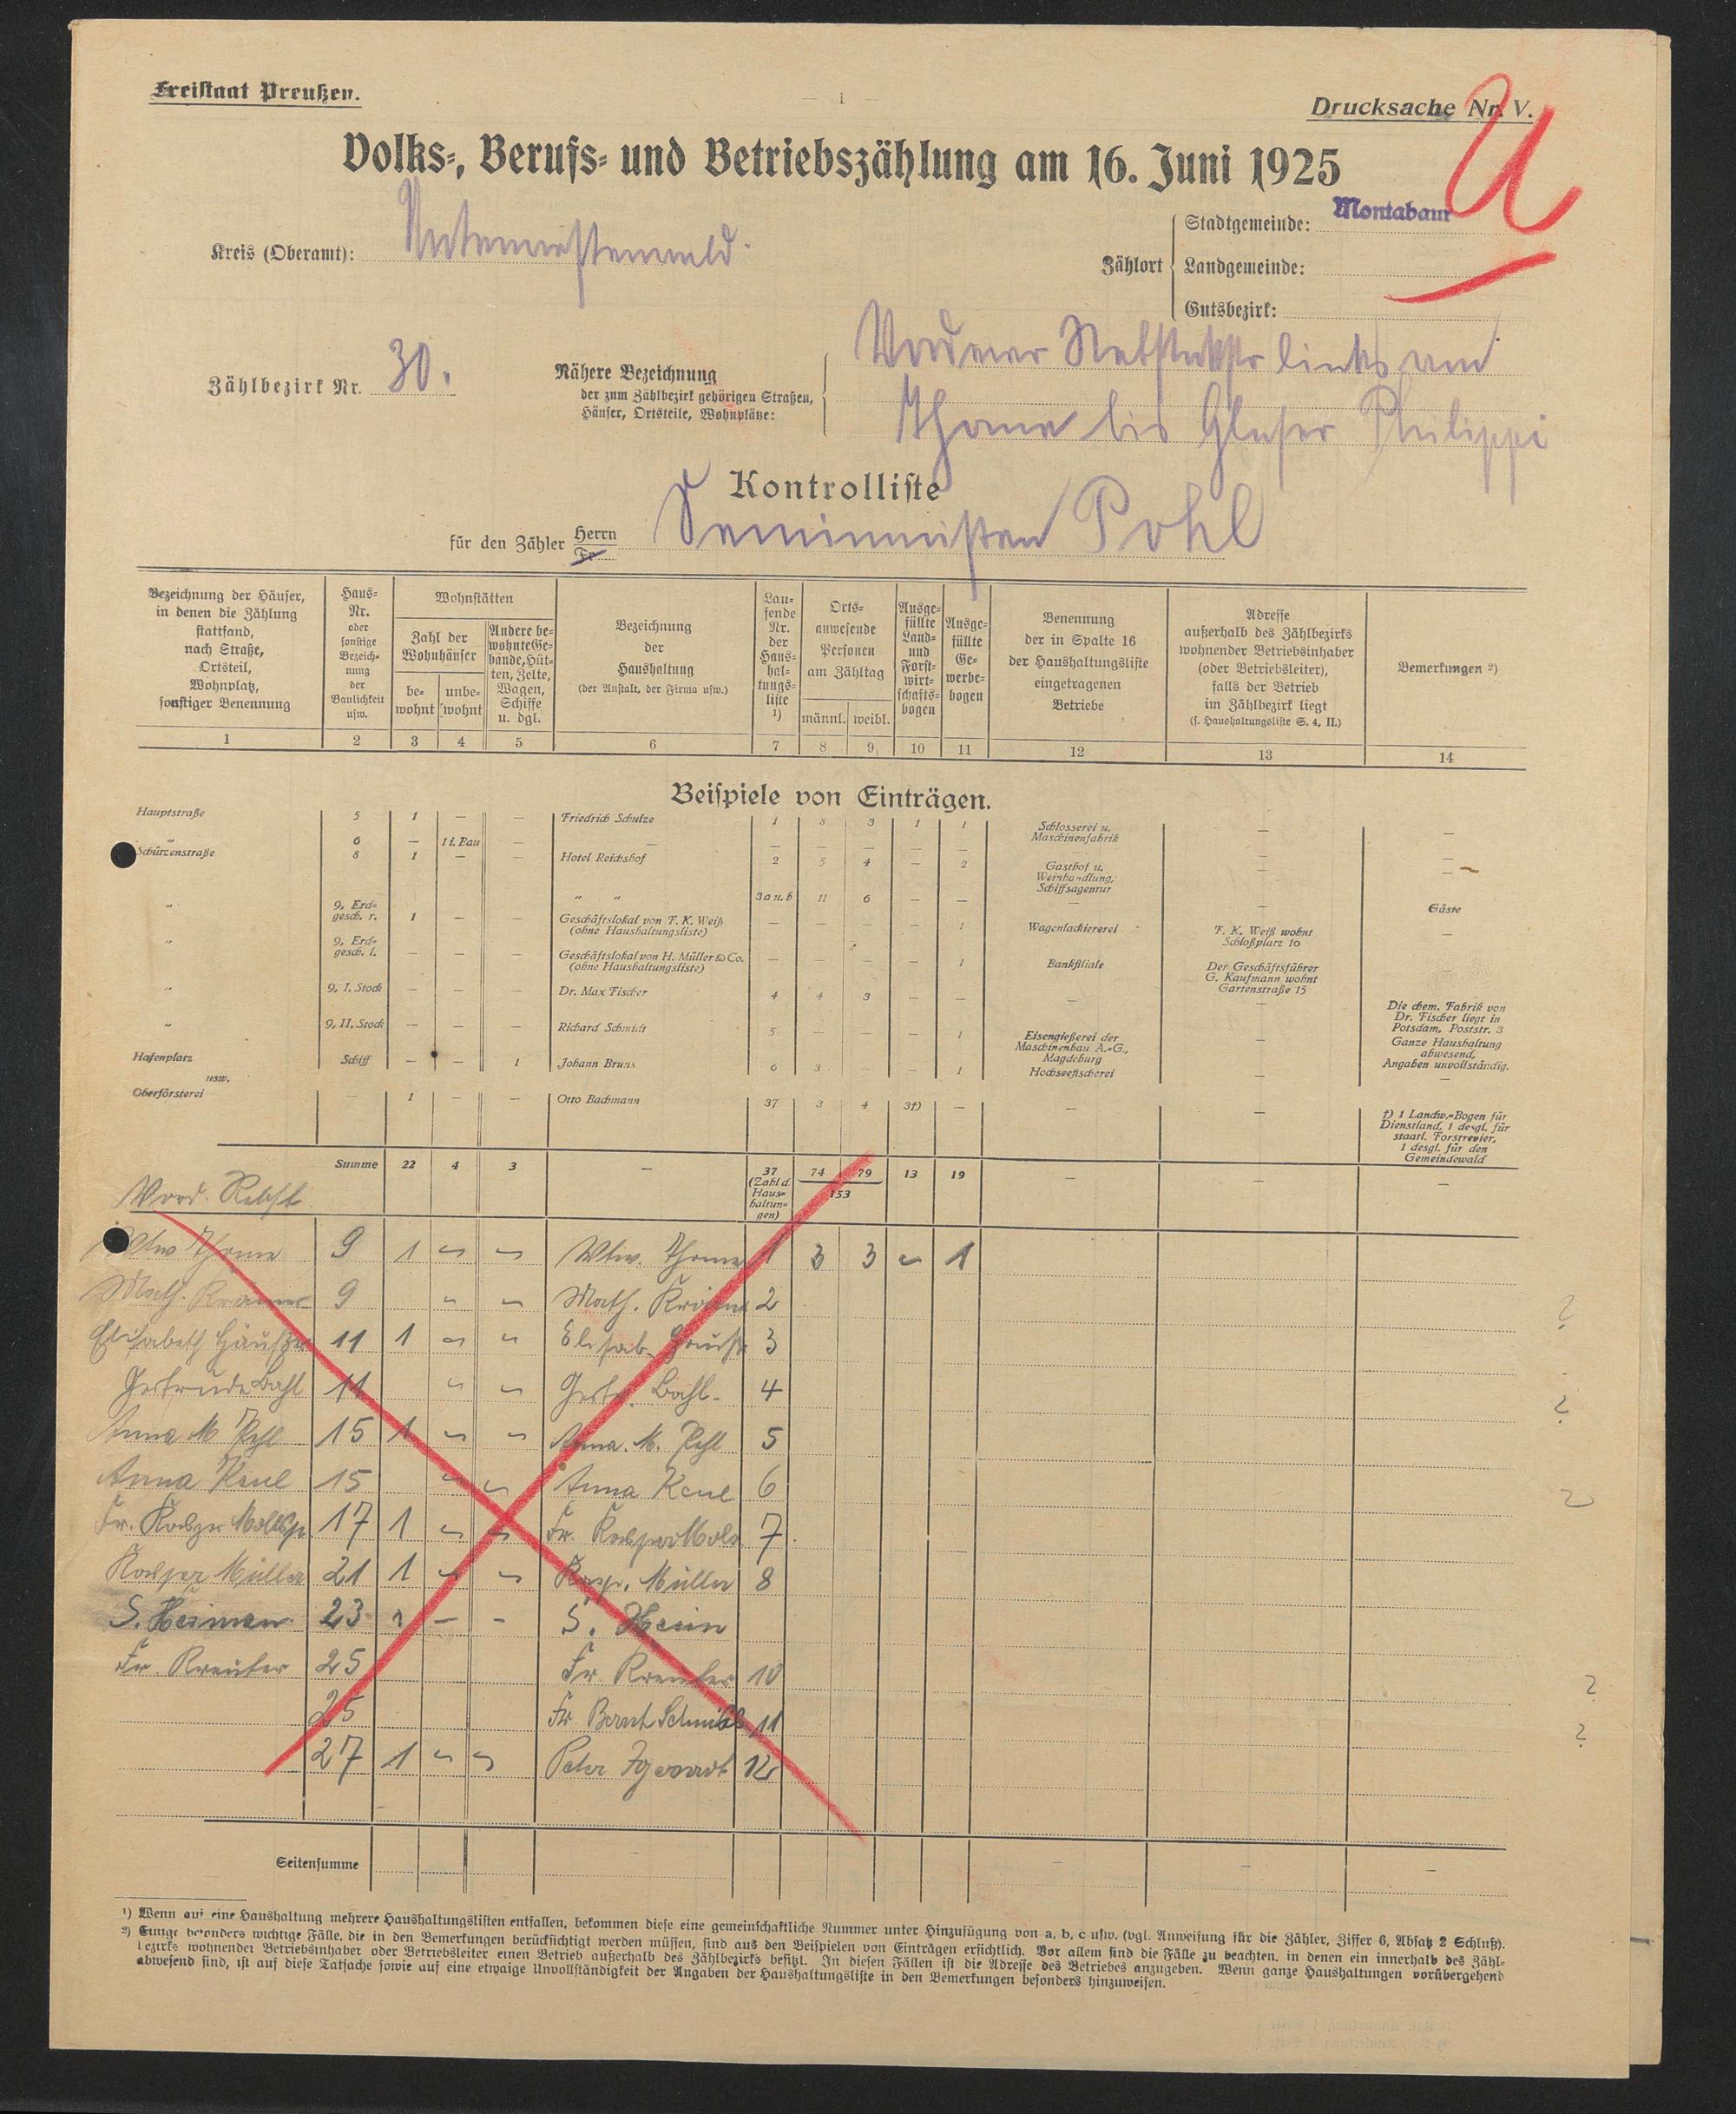 Freistaat Preußen.
— 1 —
Drucksache Nr. V.
U
Volks-, Berufs- und Betriebszählung am 16. Juni 1925
Kreis (Oberamt): Unterwesterwald.
Zählort
Stadtgemeinde: Montabaur
Landgemeinde:
Gutsbezirk:
Zählbezirk Nr. 30.
Nähere Bezeichnung
der zum Zählbezirk gehörigen Straßen,
Häuser, Ortsteile, Wohnplätze:
Vorderer Rebstock links von
Thome bis Glaser Philippi
Kontrolliste
für den Zähler Herrn Fr Seminaristen Pohl
Bezeichnung der Häuser, in denen die Zählung stattfand, nach Straße, Ortsteil, Wohnplatz, sonstiger Benennung
Haus-Nr. oder sonstige Bezeichnung der Baulichkeit usw.
Wohnstätten
Zahl der Wohnhäuser
bewohnt
unbewohnt
Andere bewohnte Gebäude, Hütten, Zelte, Wagen, Schiffe u. dgl.
Bezeichnung der Haushaltung (der Anstalt, der Firma usw.)
Laufende Nr. der Haushaltungsliste 1)
Ortsanwesende Personen am Zähltag
männl. weibl.
Ausgefüllte Land- und Forstwirtschaftsbogen
Ausgefüllte Gewerbebogen
Benennung der in Spalte 16 der Haushaltungsliste eingetragenen Betriebe
Adresse außerhalb des Zählbezirks wohnender Betriebsinhaber (oder Betriebsleiter), falls der Betrieb im Zählbezirk liegt (s. Haushaltungsliste S. 4, II.)
Bemerkungen 2)
1 2 3 4 5 6 7 8 9 10 11 12 13 14
Beispiele von Einträgen.
Hauptstraße 5 1 — — Friedrich Schulze 1 8 3 1 1 Schlosserei u. Maschinenfabrik — —
„ 6 — 1 i. Bau — — — — — — — — — —
Schützenstraße 8 1 — — Hotel Reichshof 2 5 4 — 2 Gasthof u. Weinhandlung, Schiffsagentur — —
„ „ 3 a u. b 11 6 — — — — Gäste
„ 9, Erdgesch. r. 1 — — Geschäftslokal von F. K. Weiß (ohne Haushaltungsliste) — — — — 1 Wagenlackiererei F. K. Weiß wohnt Schloßplatz 10 —
„ 9, Erdgesch. l. — — — Geschäftslokal von H. Müller & Co. (ohne Haushaltungsliste) — — — — 1 Bankfiliale Der Geschäftsführer G. Kaufmann wohnt Gartenstraße 15
„ 9, I. Stock — — — Dr. Max Fischer 4 4 3 — — — — Die chem. Fabrik von Dr. Fischer liegt in Potsdam, Poststr. 3
„ 9, II. Stock — — — Richard Schmidt 5 — — — 1 Eisengießerei der Maschinenbau A.-G., Magdeburg — Ganze Haushaltung abwesend, Angaben unvollständig.
Hafenplatz Schiff — — 1 Johann Bruns 6 3 — — 1 Hochseefischerei — —
usw.
Oberförsterei — 1 — — Otto Bachmann 37 3 4 3†) — — — †) 1 Landw.-Bogen für Dienstland, 1 desgl. für staatl. Forstrevier, 1 desgl. für den Gemeindewald
Summe 22 4 3 — 37 (Zahl d. Haushaltungen) 74 79 13 19 — — —
153
Vord. Rebst.
Wtw Thome 9 1 – – Wtw. Thome 1 3 3 – 1
Math. Krämer 9 – – Math. Kräme 2 ?
Elisabeth 11 1 – – Elisab. 3
Gertrude Bahl 11 – – Gertr. Bahl. 4 ?
Anna M Pehl 15 1 – – Anna. M. Pehl 5
Anna Keul 15 – – Anna Keul 6 ?
Fr. Kasper 17 1 – – Fr. Kasper 7
Kasper Müller 21 1 – – Kasp. Müller 8
S. Heiman 23 1 – – S. Heim
Fr. Kreuter 25 Fr. Kreuter 10 ?
25 Fr Schmidt 11 ?
27 1 – – Peter 12
Seitensumme — — — —
1) Wenn auf eine Haushaltung mehrere Haushaltungslisten entfallen, bekommen diese eine gemeinschaftliche Nummer unter Hinzufügung von a, b, c usw. (vgl. Anweisung für die Zähler, Ziffer 6, Absatz 2 Schluß).
2) Einige besonders wichtige Fälle, die in den Bemerkungen berücksichtigt werden müssen, sind aus den Beispielen von Einträgen ersichtlich. Vor allem sind die Fälle zu beachten, in denen ein innerhalb des Zähl-
bezirks wohnender Betriebsinhaber oder Betriebsleiter einen Betrieb außerhalb des Zählbezirks besitzt. In diesen Fällen ist die Adresse des Betriebes anzugeben. Wenn ganze Haushaltungen vorübergehend
abwesend sind, ist auf diese Tatsache sowie auf eine etwaige Unvollständigkeit der Angaben der Haushaltungsliste in den Bemerkungen besonders hinzuweisen.